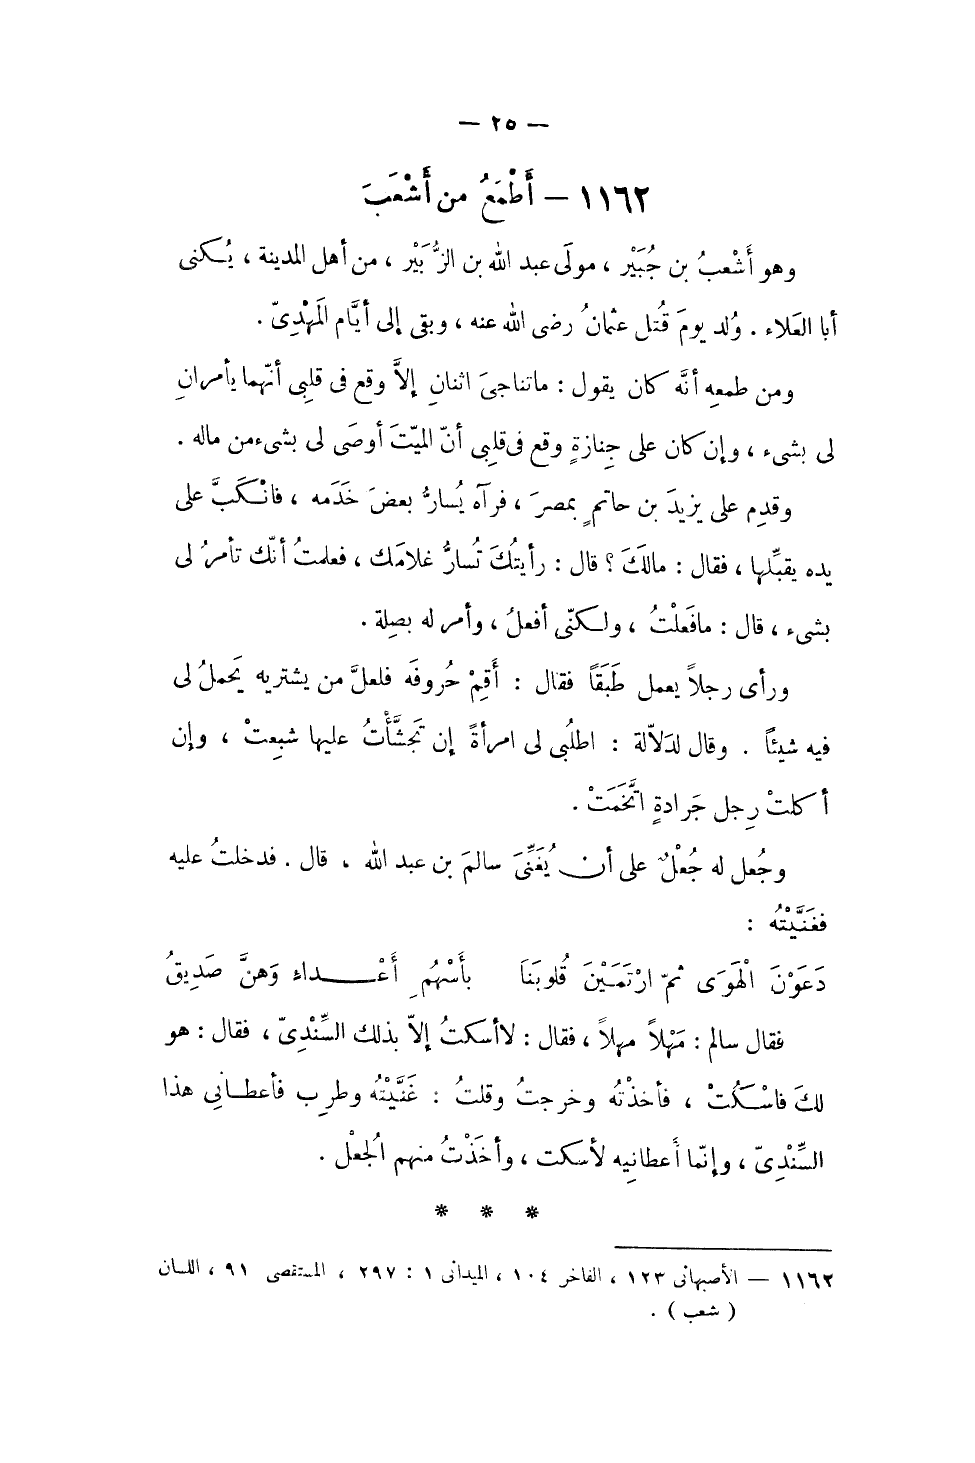 — ٢٥ —
١١٦٢ — أَطْمَعُ من أَشْعَبَ
وهو أَشْعبُ بن جُبَيْر ، مولَى عبد الله بن الزُّبَيْر ، من أهل المدينة ، يُكنى
أبا العَلاء . وُلد يومَ قُتل عثمانُ رضى الله عنه ، وبقى إلى أيَّام المَهْدِىّ .
ومن طمعِه أنَّه كان يقول : ماتناجىَ اثنانِ إلاَّ وقع فى قلبِى أنّهما يأمرانِ
لى بشىء ، وإن كان على جِنازةٍ وقع فى قلبِى أنّ الميّتَ أوصَى لى بشىء من ماله .
وقدِم على يزيدَ بن حاتمٍ بمصرَ ، فرآه يُسارُّ بعضَ خَدَمه ، فانْكَبَّ على
يده يقبِّلها ، فقال : مالكَ ؟ قال : رأيتُكَ تُسارُّ غلامَك ، فعلمتُ أنّك تأمرُ لى
بشىء ، قال : مافَعلْتُ ، ولكنّى أفعلُ ، وأمر له بصِلة .
ورأى رجلاً يعمل طَبَقاً فقال : أَقِمْ حُروفَه فلعلَّ من يشتريه يَحملُ لى
فيه شيئاً . وقال لدَلاّلة : اطلُبى لى امرأةً إن تَجشَّأْتُ عليها شبِعتْ ، وإن
أكلتْ رِجل جَرادةٍ اتَّخَمَتْ .
وجُعل له جُعْلٌ على أن يُغَنِّىَ سالمَ بن عبد الله ، قال . فدخلتُ عليه
فغَنَّيْتُه :
دَعَوْنَ الْهَوَى ثمّ ارْتَمَيْنَ قُلوبَنَا   بأَسْهُمِ أَعْداءِ وَهنَّ صَدِيقُ
فقال سالم : مَهْلاً مهلاً ، فقال : لاأسكتُ إلاّ بذلك السِّنْدِىّ ، فقال : هو
لكَ فاسْكُتْ ، فأخذْتُه وخرجتُ وقلتُ : غَنَّيْتُه وطرِب فأعطانِى هذا
السِّنْدِىّ ، وإنّما أعطانِيه لأسكت ، وأخَذْتُ منهم الُجعْل .
* * *
١١٦٢ — الأصبهانى ١٢٣ ، الفاخر ١٠٤ ، الميدانى ١ : ٢٩٧ ، المستقصى ٩١ ، اللسان
( شعب ) .